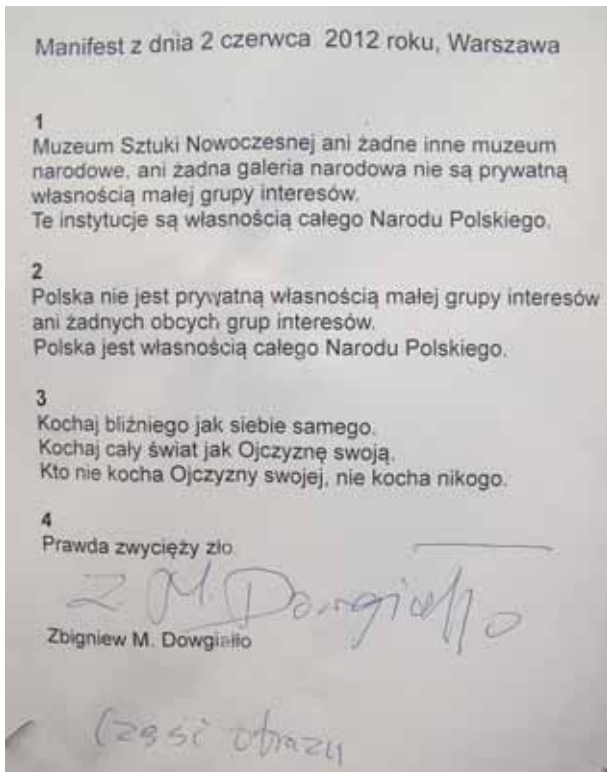 Manifest z dnia 2 czerwca 2012 roku, Warszawa
1
Muzeum Sztuki Nowoczesnej ani żadne inne muzeum
narodowe, ani żadna galeria narodowa nie są prywatną
własnością małej grupy interesów.
Te instytucje są własnością całego Narodu Polskiego.
2
Polska nie jest prywatną własnością małej grupy interesów
ani żadnych obcych grup interesów.
Polska jest własnością całego Narodu Polskiego.
3
Kochaj bliźniego jak siebie samego.
Kochaj cały świat jak Ojczyznę swoją.
Kto nie kocha Ojczyzny swojej, nie kocha nikogo.
4
Prawda zwycięży zło.
Z M. Dowgiałło
Zbigniew M. Dowgiałło
Część obrazu